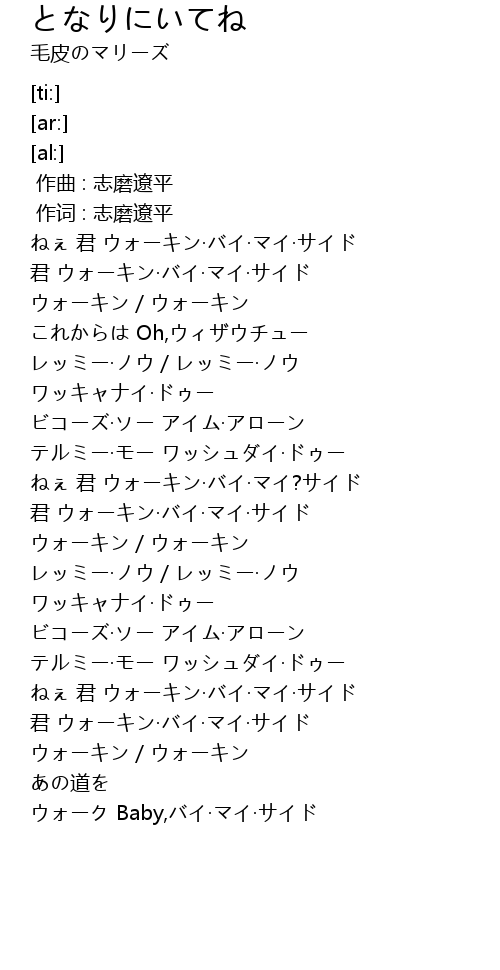 となりにいてね
毛皮のマリーズ
[ti:]
[ar:]
[al:]
作曲 : 志磨遼平
作词 : 志磨遼平
ねぇ 君 ウォーキン·バイ·マイ·サイド
君 ウォーキン·バイ·マイ·サイド
ウォーキン / ウォーキン
これからは Oh,ウィザウチュー
レッミー·ノウ / レッミー·ノウ
ワッキャナイ·ドゥー
ビコーズ·ソー アイム·アローン
テルミー·モー ワッシュダイ·ドゥー
ねぇ 君 ウォーキン·バイ·マイ?サイド
君 ウォーキン·バイ·マイ·サイド
ウォーキン / ウォーキン
レッミー·ノウ / レッミー·ノウ
ワッキャナイ·ドゥー
ビコーズ·ソー アイム·アローン
テルミー·モー ワッシュダイ·ドゥー
ねぇ 君 ウォーキン·バイ·マイ·サイド
君 ウォーキン·バイ·マイ·サイド
ウォーキン / ウォーキン
あの道を
ウォーク Baby,バイ·マイ·サイド